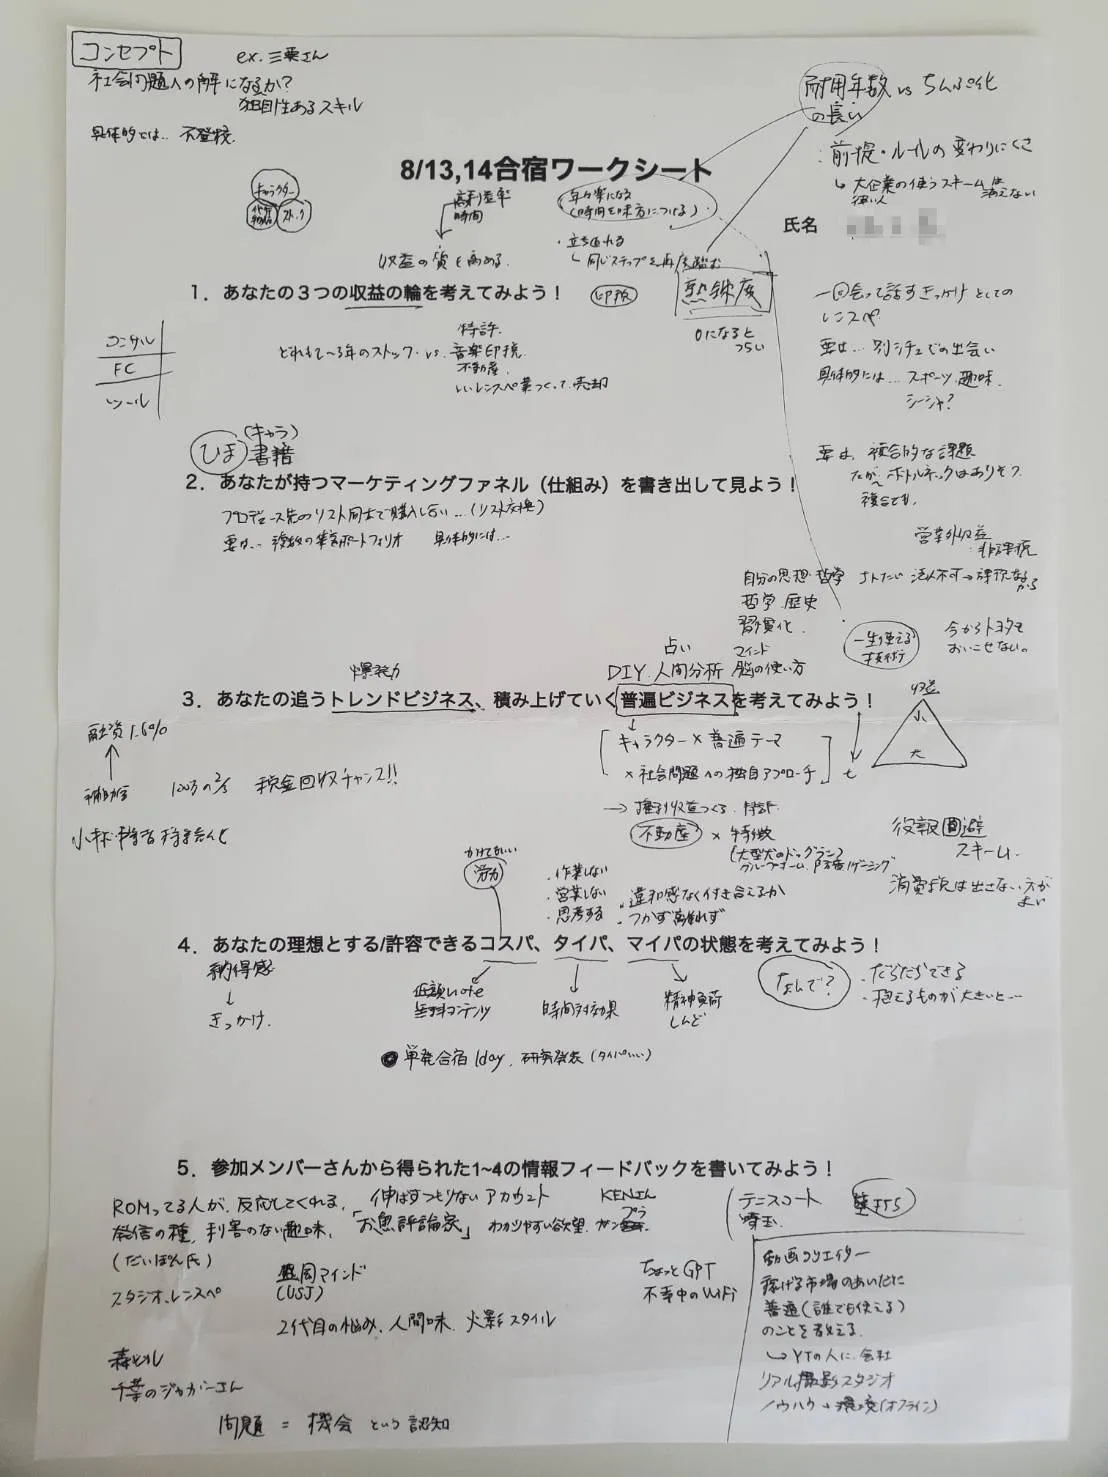 コンセプト
ex. 三栗さん
社会問題への解になるか?
独自性あるスキル
具体的では… 不登校
耐用年数 vs ちんぷ化
の長い
:前提・ルールの変わりにくさ
↳ 大企業の使うスキームは消えない
8/13,14合宿ワークシート
氏名
キャラクター
ストック
高利益率
時間
年々楽になる
(時間を味方につける)
収益の質を高める
・立ち直れる
↳ 同じステップを再度踏む
1. あなたの3つの収益の輪を考えてみよう!
印税
熟錬度
0になると
つらい
コンサル
FC
ツール
特許
どれも〜3年のストック vs. 音楽印税
不動産
いいレンスペ業つくって売却
一回会って話すきっかけとしての
レンスペ
要は… 別シチュでの出会い
具体的には… スポーツ、趣味
シーシャ?
(キャラ)
ひま 書籍
2. あなたが持つマーケティングファネル(仕組み)を書き出して見よう!
プロデュース先のリスト同士で購入し合い…(リスト交換)
要は… 複数の事業ポートフォリオ 具体的には…
要は、複合的な課題
だが〜ボトルネックはありそう
複合でも、
営業外収益
非課税
自分の思想・哲学
哲学、歴史
習慣化
一生使える
技術
今からトヨタを
おいこせない。
占い マインド
DIY. 人間分析 脳の使い方
爆発力
3. あなたの追うトレンドビジネス、積み上げていく普遍ビジネスを考えてみよう!
収益
小
大
キャラクター × 普遍テーマ
× 社会問題への独自アプローチ
融資 1.6%
補助金
100万の2/3 税金回収チャンス!!
→ 権利収益つくる. 特許.
不動産 × 特徴
(大型犬のドッグラン)
役報回避
スキーム.
消費税は出さない方が
よい
かけてもいい
労力
・作業しない
・営業しない
・思考する
・違和感なく付き合えるか
・つかず離れず
4. あなたの理想とする/許容できるコスパ、タイパ、マイパの状態を考えてみよう!
納得感
↓
きっかけ.
低額note
無料コンテンツ
時間対効果
精神負荷
しんど
なんで?
・だらだらできる
・抱えるものが大きいと…
● 単発合宿1day. 研究発表(タイパいい)
5. 参加メンバーさんから得られた1~4の情報フィードバックを書いてみよう!
ROMってる人が、反応してくれる、伸ばすつもりないアカウント
発信の種, 利害のない趣味, 「お魚評論家」 わかりやすい欲望.
KENさん
ガンプラ
(だいぽん氏)
テニスコート
埼玉.
スタジオ、レンスペ
盛岡マインド
(USJ)
ちょっとGPT
不幸中のWiFi
2代目の悩み、人間味、火影スタイル
動画クリエイター
稼げる市場のあいだに
普遍(誰でも使える)
のことを教える.
↳ YTの人に会社
リアル撮影スタジオ
ノウハウ→環境(オフライン)
森ビル
千葉のジョガーさん
問題 = 機会 という認知